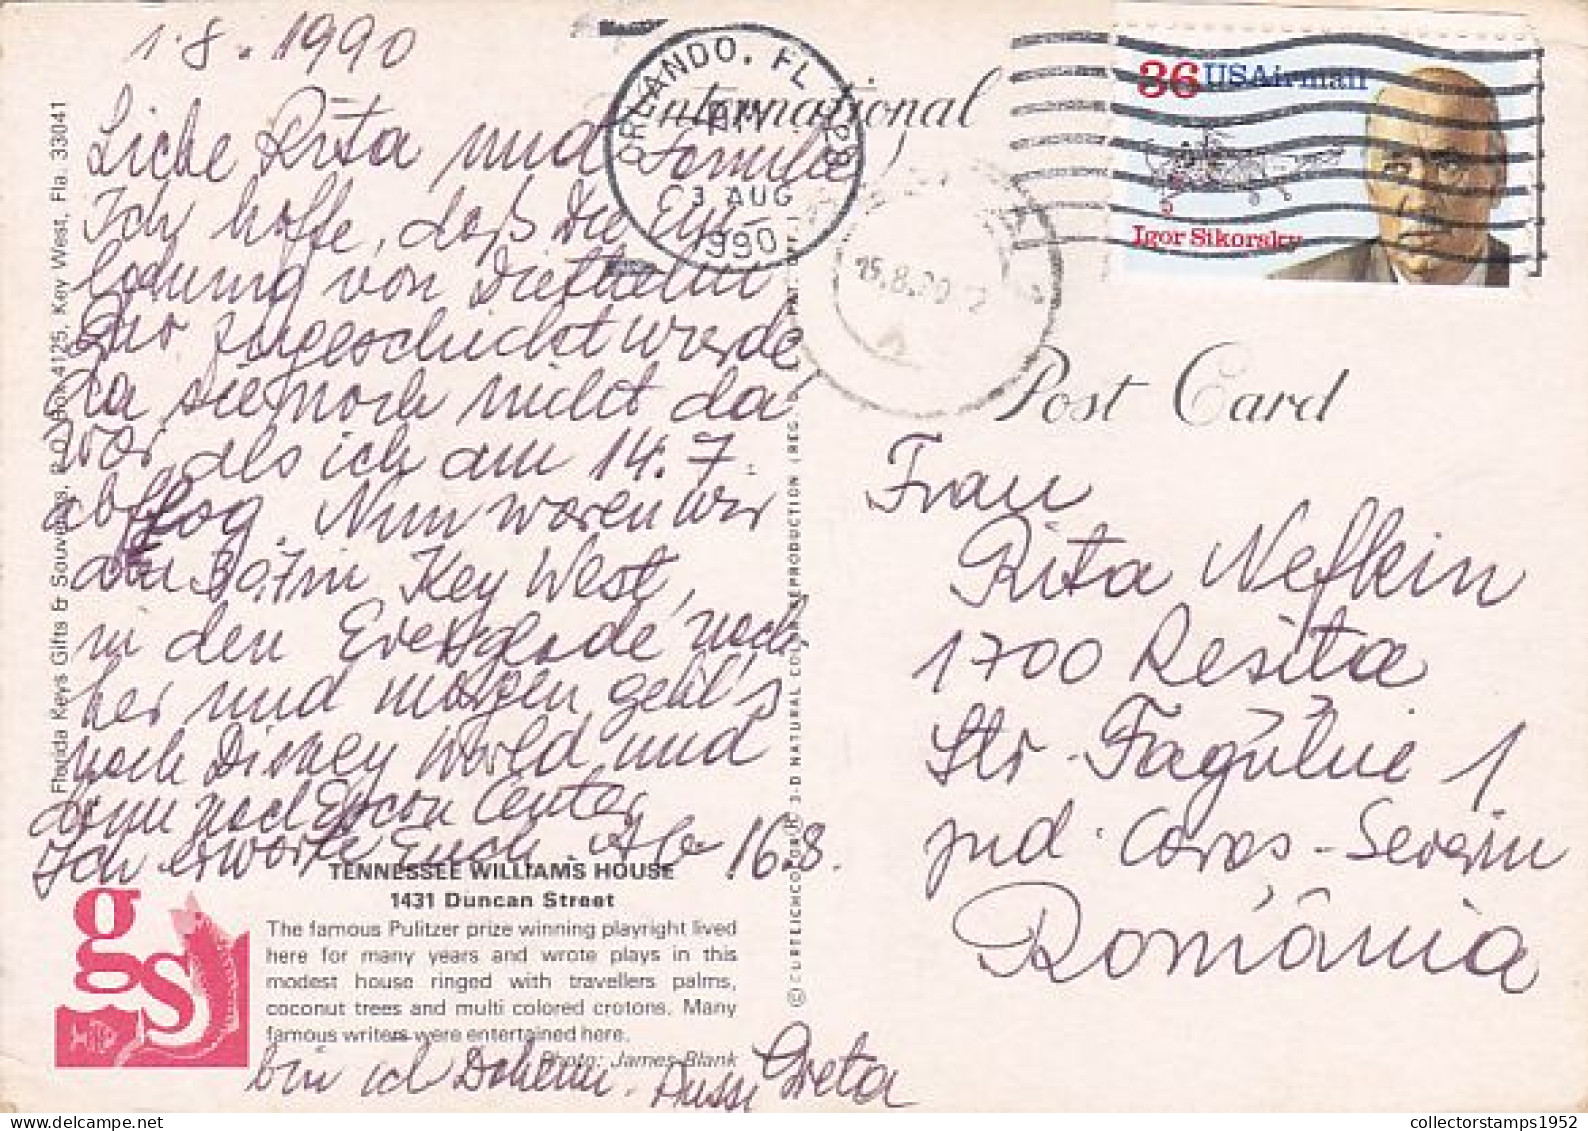 1.8.1990
Liebe Rita und Familie!
Ich hoffe, daß Dir die Ein-
ladung von Diethelm
zugeschickt wurde
da Sie noch nicht da
war als ich am 14.7.
abflog. Nun waren wir
am 30.7 in Key West,
in den Everglade nach
her und morgen geht's
nach Disney World und
dann nach Epcon Center
Ich erwarte Euch. Ab 16.8.
bin ich Daheim. Bussi Greta
TENNESSEE WILLIAMS HOUSE
1431 Duncan Street
The famous Pulitzer prize winning playright lived
here for many years and wrote plays in this
modest house ringed with travellers palms,
coconut trees and multi colored crotons. Many
famous writers were entertained here.
Photo: James Blank
gs
Florida Keys Gifts & Souvenirs, P.O. Box 4125, Key West, Fla. 33041
© CURTEICHCOLOR® 3-D NATURAL COLOR REPRODUCTION (REG. U.S. PAT. OFF.)
ORLANDO, FL 328
PM
3 AUG
1990
International
15.8.90
36 USAirmail
Igor Sikorsky
Post Card
Frau
Rita Neffkin
1700 Resita
Str. Făgulue 1
jud. Caras-Severin
România
collectorstamps1952